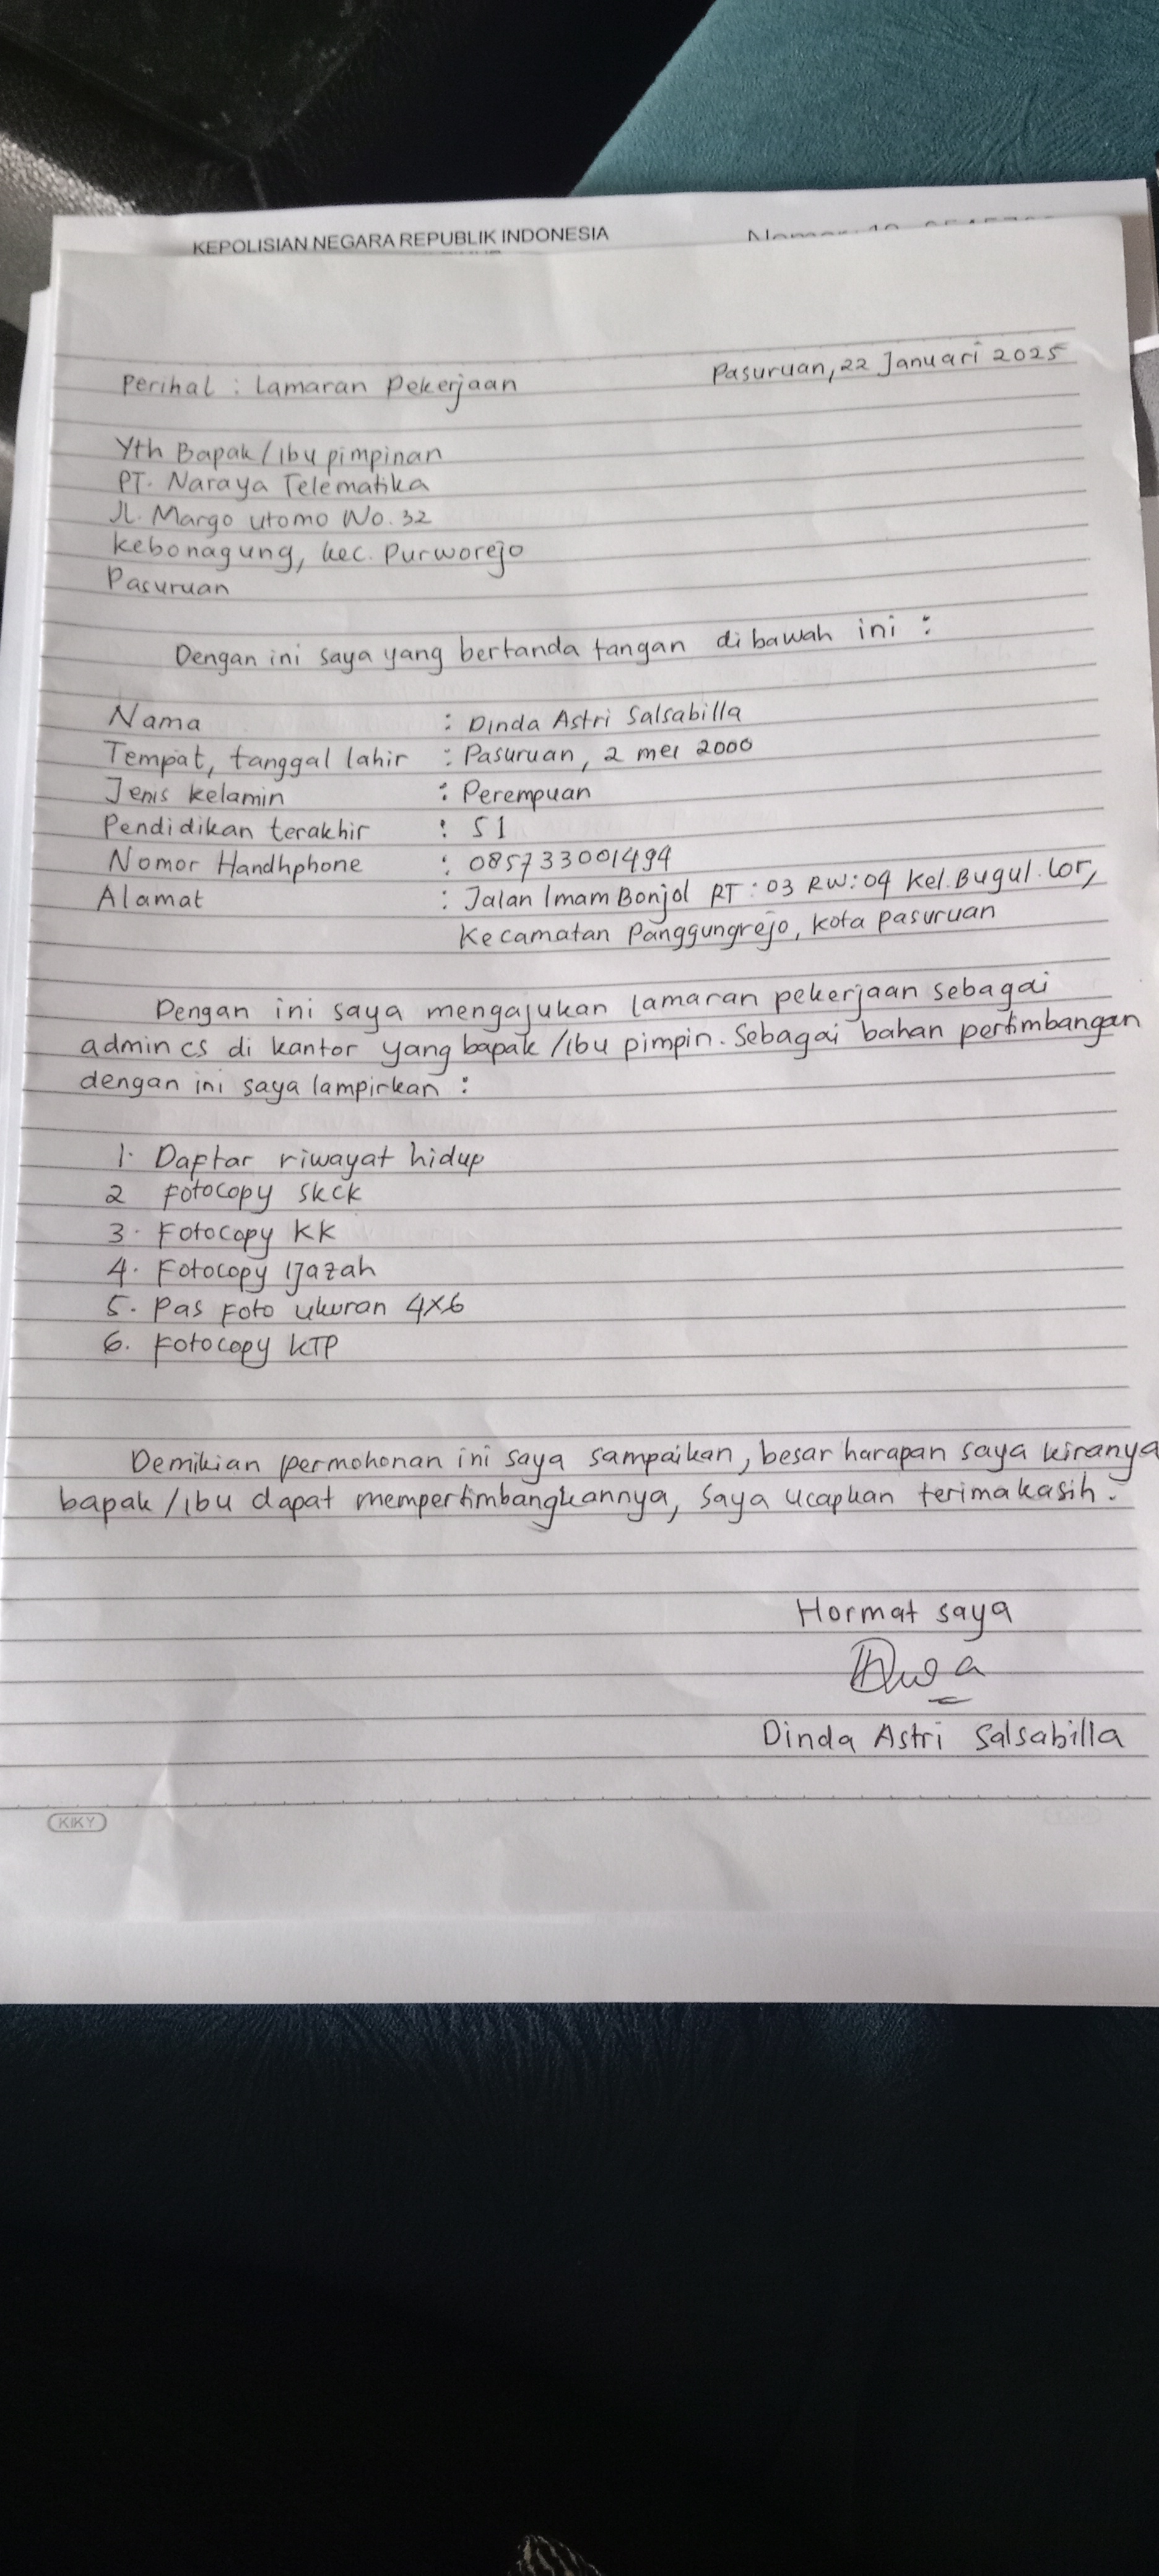 KEPOLISIAN NEGARA REPUBLIK INDONESIA
Pasuruan, 22 Januari 2025
Perihal : Lamaran Pekerjaan
Yth Bapak / Ibu pimpinan
PT. Naraya Telematika
Jl. Margo utomo No. 32
Kebonagung, kec. Purworejo
Pasuruan
Dengan ini saya yang bertanda tangan dibawah ini :
Nama : Dinda Astri Salsabilla
Tempat, tanggal lahir : Pasuruan, 2 mei 2000
Jenis kelamin : Perempuan
Pendidikan terakhir : S1
Nomor Handhphone : 085733001494
Alamat : Jalan Imam Bonjol RT : 03 RW : 04 Kel. Bugul. Lor,
Kecamatan Panggungrejo, kota pasuruan
Dengan ini saya mengajukan lamaran pekerjaan sebagai
admin cs di kantor yang bapak / ibu pimpin. Sebagai bahan pertimbangan
dengan ini saya lampirkan :
1. Daftar riwayat hidup
2 Fotocopy SKCK
3. Fotocopy KK
4. Fotocopy Ijazah
5. Pas Foto ukuran 4x6
6. Fotocopy KTP
Demikian permohonan ini saya sampaikan, besar harapan saya kiranya
bapak / ibu dapat mempertimbangkannya, saya ucapkan terimakasih.
Hormat saya
Dinda Astri Salsabilla
KIKY